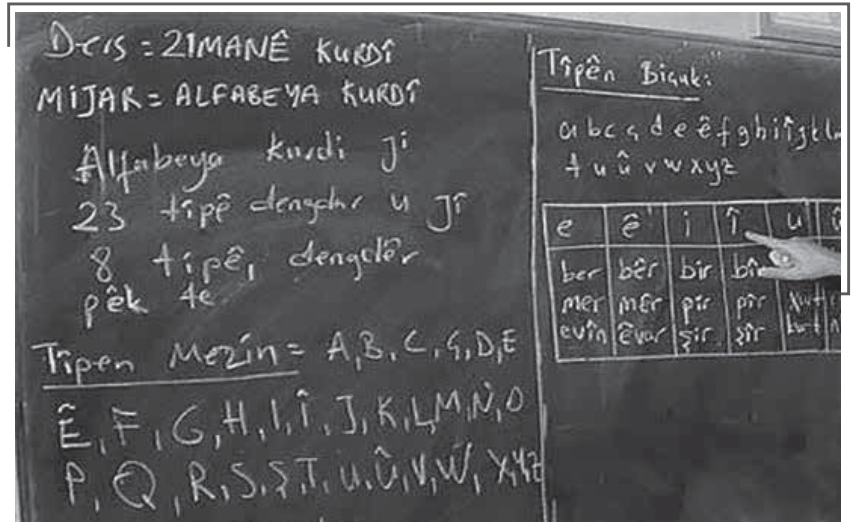 Ders = ZIMANÊ KURDÎ
MiJAR = ALFABEYA KURDÎ
Alfabeya kurdi ji
23 tîpê dengdar u Jî
8 tipê, dengdêr
pêk te
Tîpen Mezin = A, B, C, Ç, D, E
Ê, F, G, H, I, Î, J, K, L, M, N, O
P, Q, R, S, Ş, T, U, Û, V, W, X, Y, Z
Tîpên Biçuk:
a b c ç d e ê f g h i î j k l
t u û v w x y z
e ê i î u
ber bêr bir bîr
mer mêr pir pîr
evîn êvar şir şîr kurt